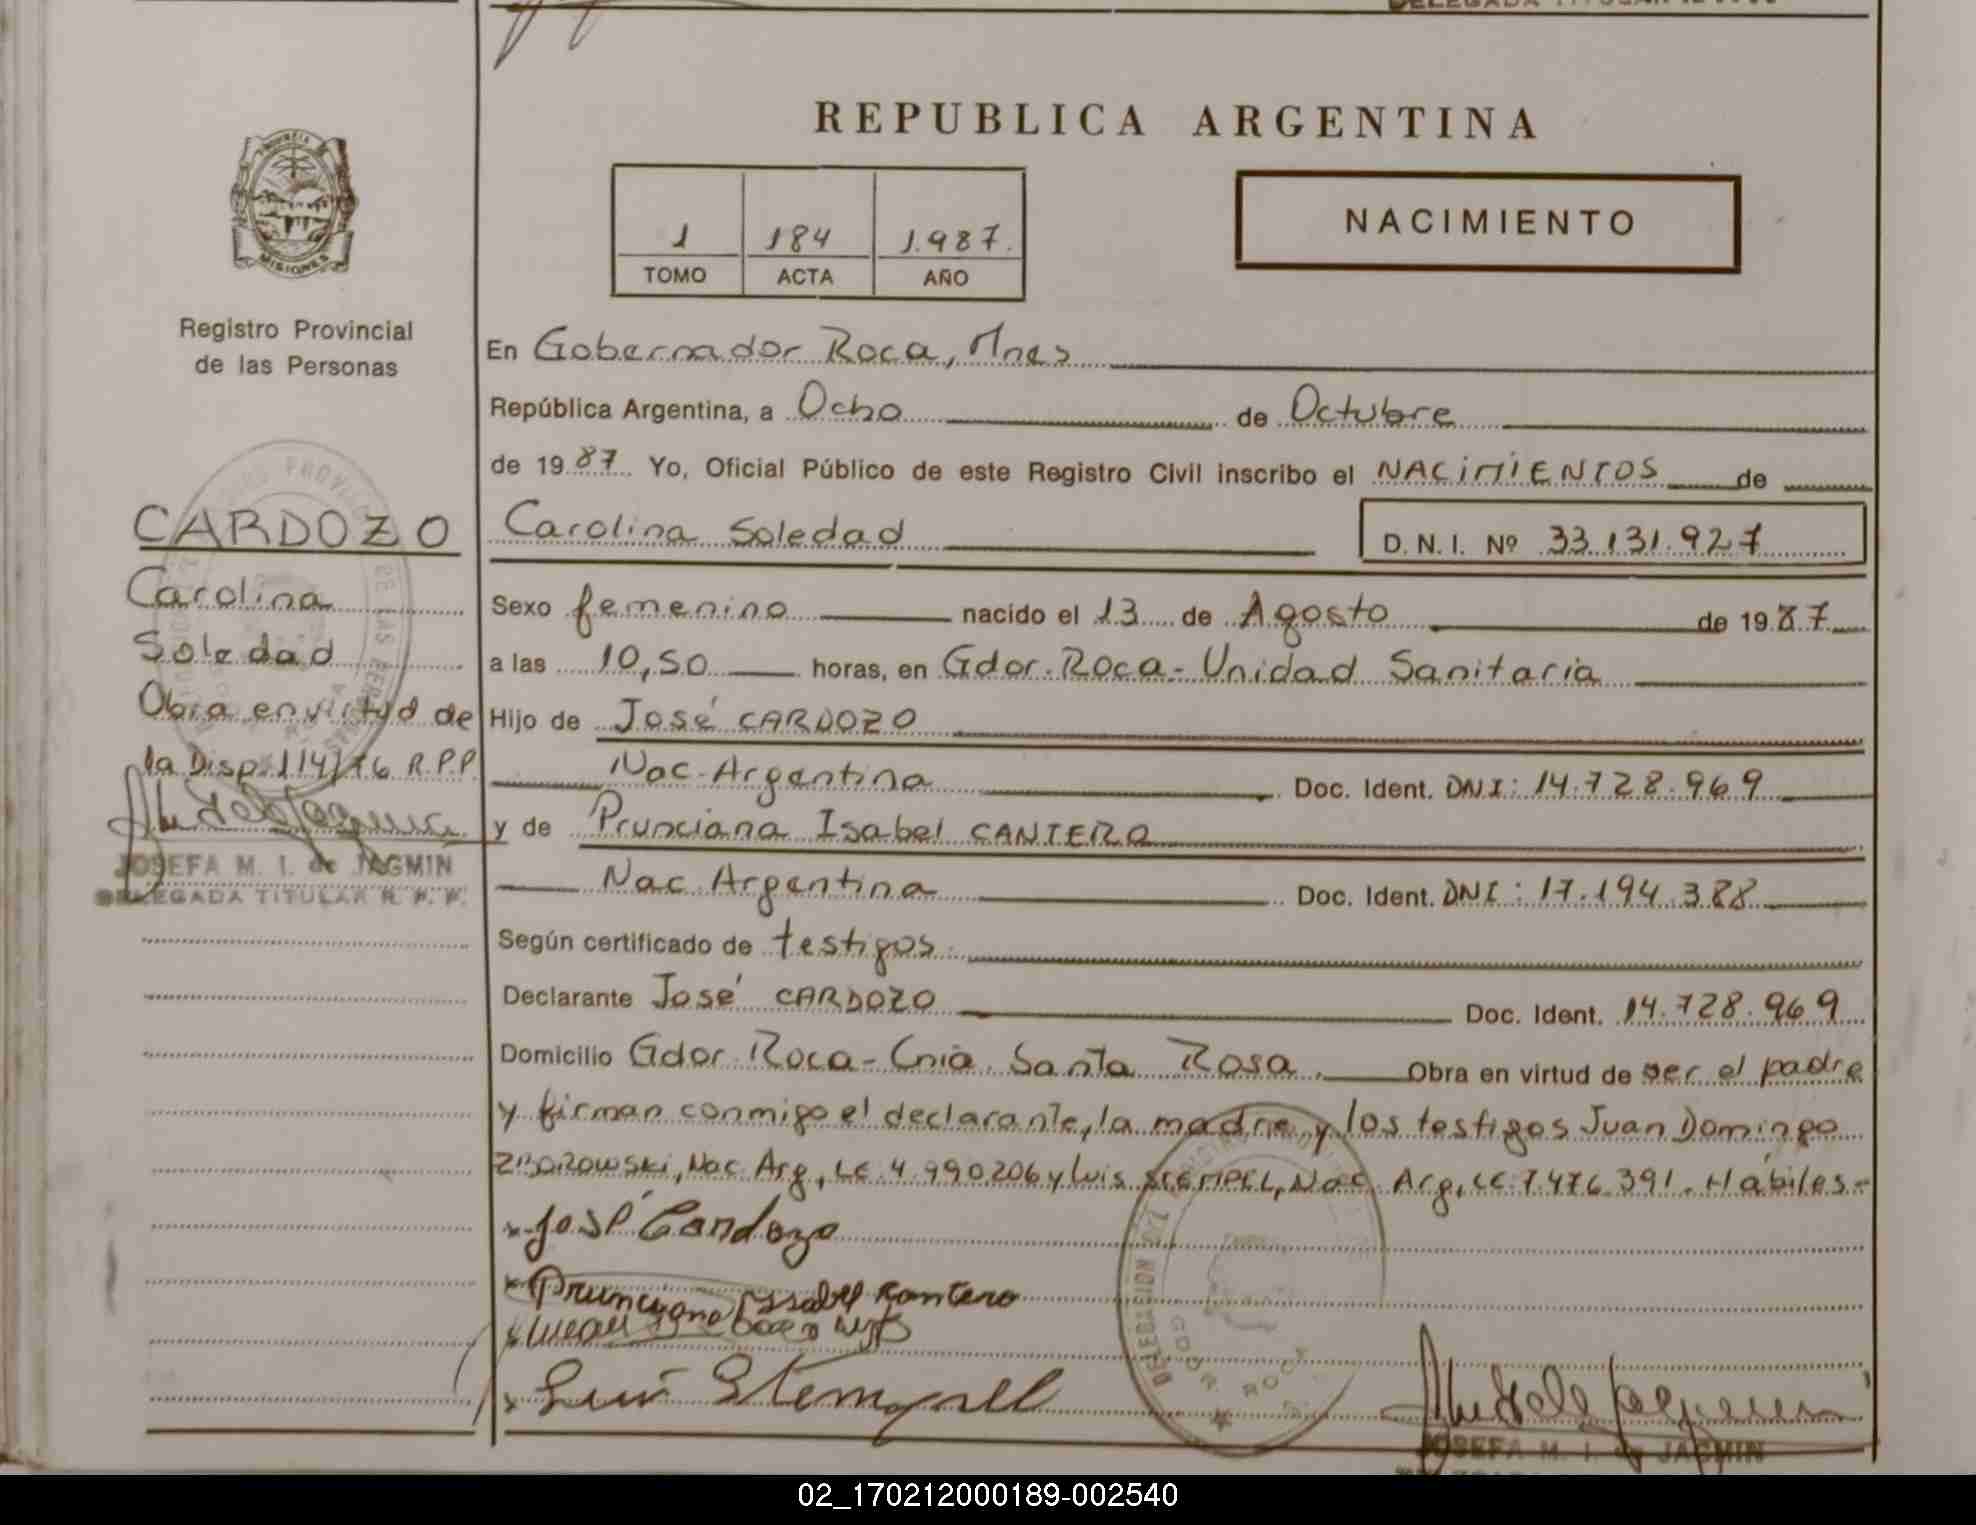 REPUBLICA ARGENTINA
NACIMIENTO
1 184 1.987.
TOMO ACTA AÑO
MISIONES
Registro Provincial
de las Personas
En Gobernador Roca, Mnes
República Argentina, a Ocho de Octubre
de 1987 Yo, Oficial Público de este Registro Civil inscribo el NACIMIENTOS de
Carolina Soledad D.N.I. Nº 33.131.927
Sexo femenino nacido el 13 de Agosto de 1987
a las 10,50 horas, en Gdor. Roca - Unidad Sanitaria
Hijo de José CARDOZO
Nac. Argentina Doc. Ident. DNI: 14.728.969
y de Prunciana Isabel CANTERO
Nac. Argentina Doc. Ident. DNI: 17.194.388
Según certificado de testigos.
Declarante José CARDOZO Doc. Ident. 14.728.969
Domicilio Gdor. Roca - Cnia. Santa Rosa. Obra en virtud de ser el padre
y firman conmigo el declarante, la madre y los testigos Juan Domingo
ZBOROWSKI, Nac. Arg., LE. 4.990206 y Luis STEMPEL, Nac. Arg, LE 7.476.391. Hábiles-
José Cardozo
Prunciana Issabel Kantero
Luis Stempell
JOSEFA M. I. de JAGMIN
CARDOZO
Carolina
Soledad
Obra en virtud de
la Disp. 114/76 R.P.P.
JOSEFA M. I. de JAGMIN
DELEGADA TITULAR R. P. P.
02_170212000189-002540